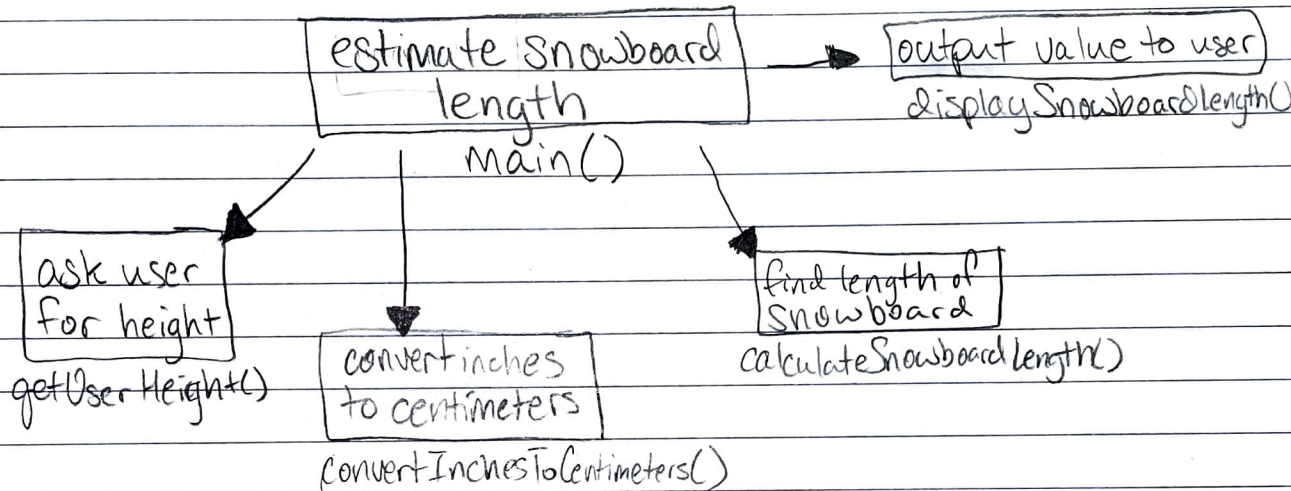 estimate snowboard
length
main()
output value to user
displaySnowboardLength()
ask user
for height
getUserHeight()
convert inches
to centimeters
convertInchesToCentimeters()
find length of
snowboard
calculateSnowboardLength()